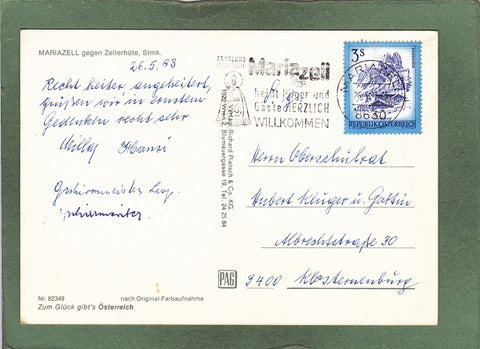 MARIAZELL gegen Zellerhüte, Stmk.
26.5.83
Recht heiter angeheitert,
grüßen wir in ernstem
Gedenken recht sehr
Willy Hansi
ERHOLUNG
Mariazell
heißt Pilger und
Gäste HERZLICH
WILLKOMMEN
3 S
REPUBLIK ÖSTERREICH
MARIAZELL
8630
Verlag Richard Pietsch & Co. KG
1100 Wien, 19, Tel. 24 25 84
Herrn Oberschulrat
Hubert Kluger u. Gattin
Albrechtstraße 30
3400 Klosterneuburg
PAG
Nr. 82349
nach Original-Farbaufnahme
Zum Glück gibt's Österreich